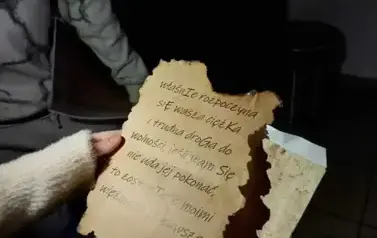 właśnIe rozpoczyna
sIĘ wasza cięŻKa
i trudna droGa do
wolności Się
nie uda jej pokonać,
to moimi